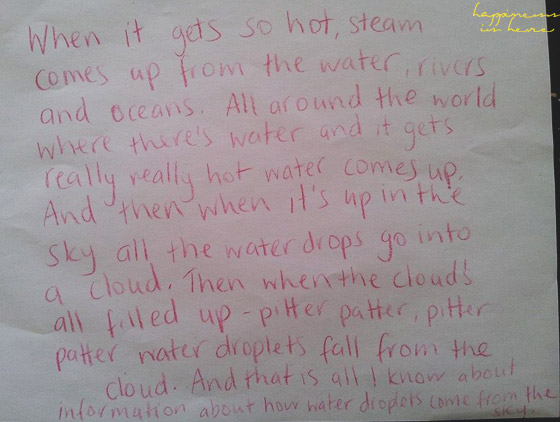 happiness
is here
When it gets so hot, steam
comes up from the water, rivers
and oceans. All around the world
where there's water and it gets
really really hot water comes up.
And then when it's up in the
sky all the water drops go into
a cloud. Then when the cloud's
all filled up - pitter patter, pitter
patter water droplets fall from the
cloud. And that is all I know about
information about how water droplets come from the
sky.